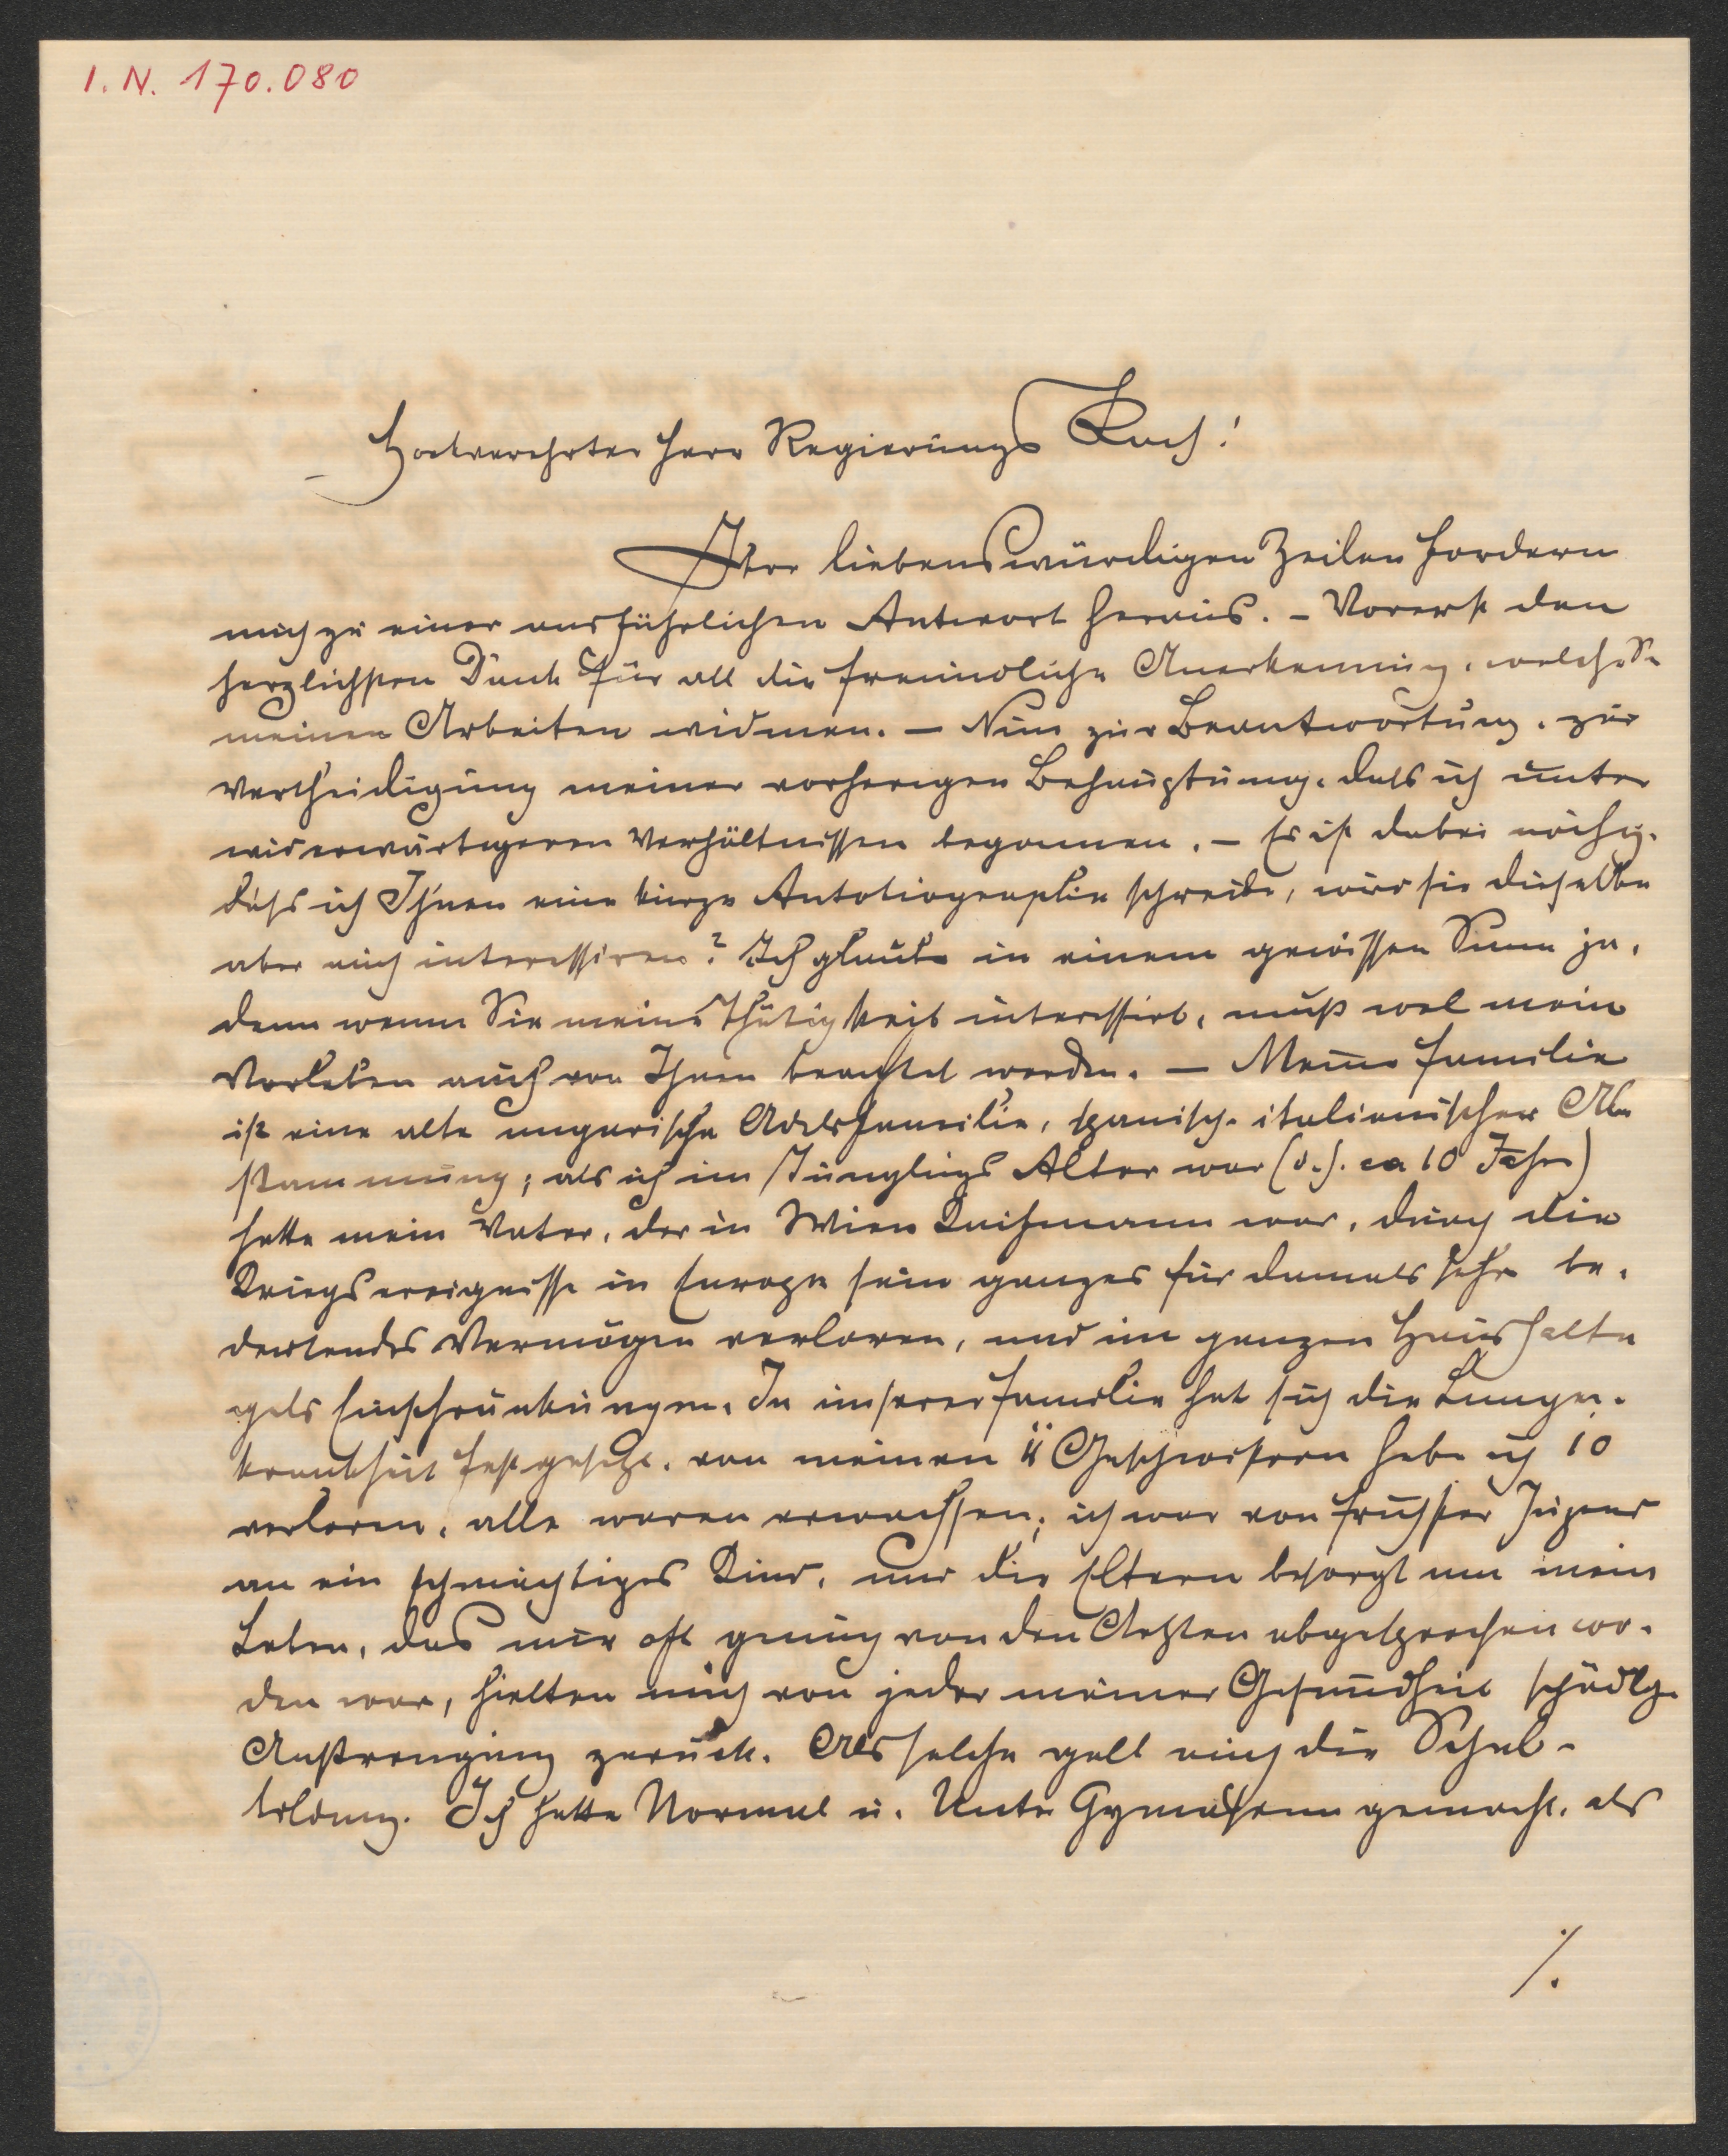 I. N. 170.080
Hochverehrter Herr Regierungs Rath!
Ihre liebenswürdigen Zeilen fordern
mich zu einer ausführlichen Antwort heraus. – Vorerst den
herzlichsten Dank für all die freundliche Anerkennung, welche Sie
meinen Arbeiten widmen. – Nun zur Beantwortung, zur
Vertheidigung meiner vorherigen Behauptung, dass ich unter
widerwärtigeren Verhältnissen begonnen. – Es ist dabei nöthig,
dass ich Ihnen eine kurze Autobiographie schreibe, wird sie dieselbe
aber auch interessiren? Ich glaube in einem gewissen Sinne ja,
denn wenn Sie meine Thätigkeit interessirt, muß wol mein
Vorleben auch von Ihnen beachtet werden. – Meine Familie
ist eine alte ungarische Adelsfamilie, spanisch-italienischer Ab
stammung; als ich im Jünglings Alter war (d. h. ca 10 Jahre)
hatte mein Vater, der in Wien Kaufmann war, durch die
Kriegsereignisse in Europa sein ganzes für damals sehr be-
deutendes Vermögen verloren, und im ganzen Haushalte
galts Einschränkungen. In unserer Familie hat sich die Lungen-
krankheit festgesetzt, von meinen 11 Geschwistern habe ich 10
verloren, alle waren erwachsen; ich war von frühster Jugend
an ein schmächtiges Kind, und die Eltern besorgt um mein
Leben, das mir oft genug von den Aerzten abgesprochen wor-
den war, hielten mich von jeder meiner Gesundheit schädlg.
Anstrengung zurück. Als solche galt auch die Schul-
bildung. Ich hatte Normal u. Unter Gymnasium gemacht, als
/.